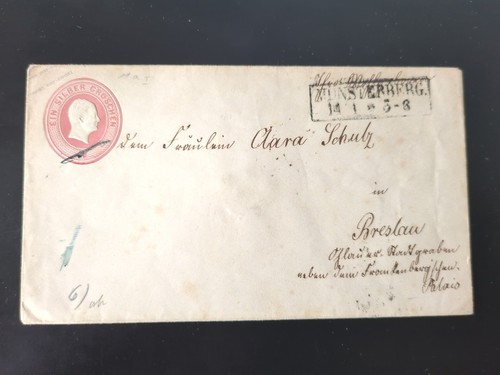 EIN SILBER GROSCHEN
MÜNSTERBERG.
14 1 5-8
dem Fräulein Clara Schulz
in
Breslau
Ohlauer Stadtgraben
neben dem Frankenberg'schen
Palais
6)